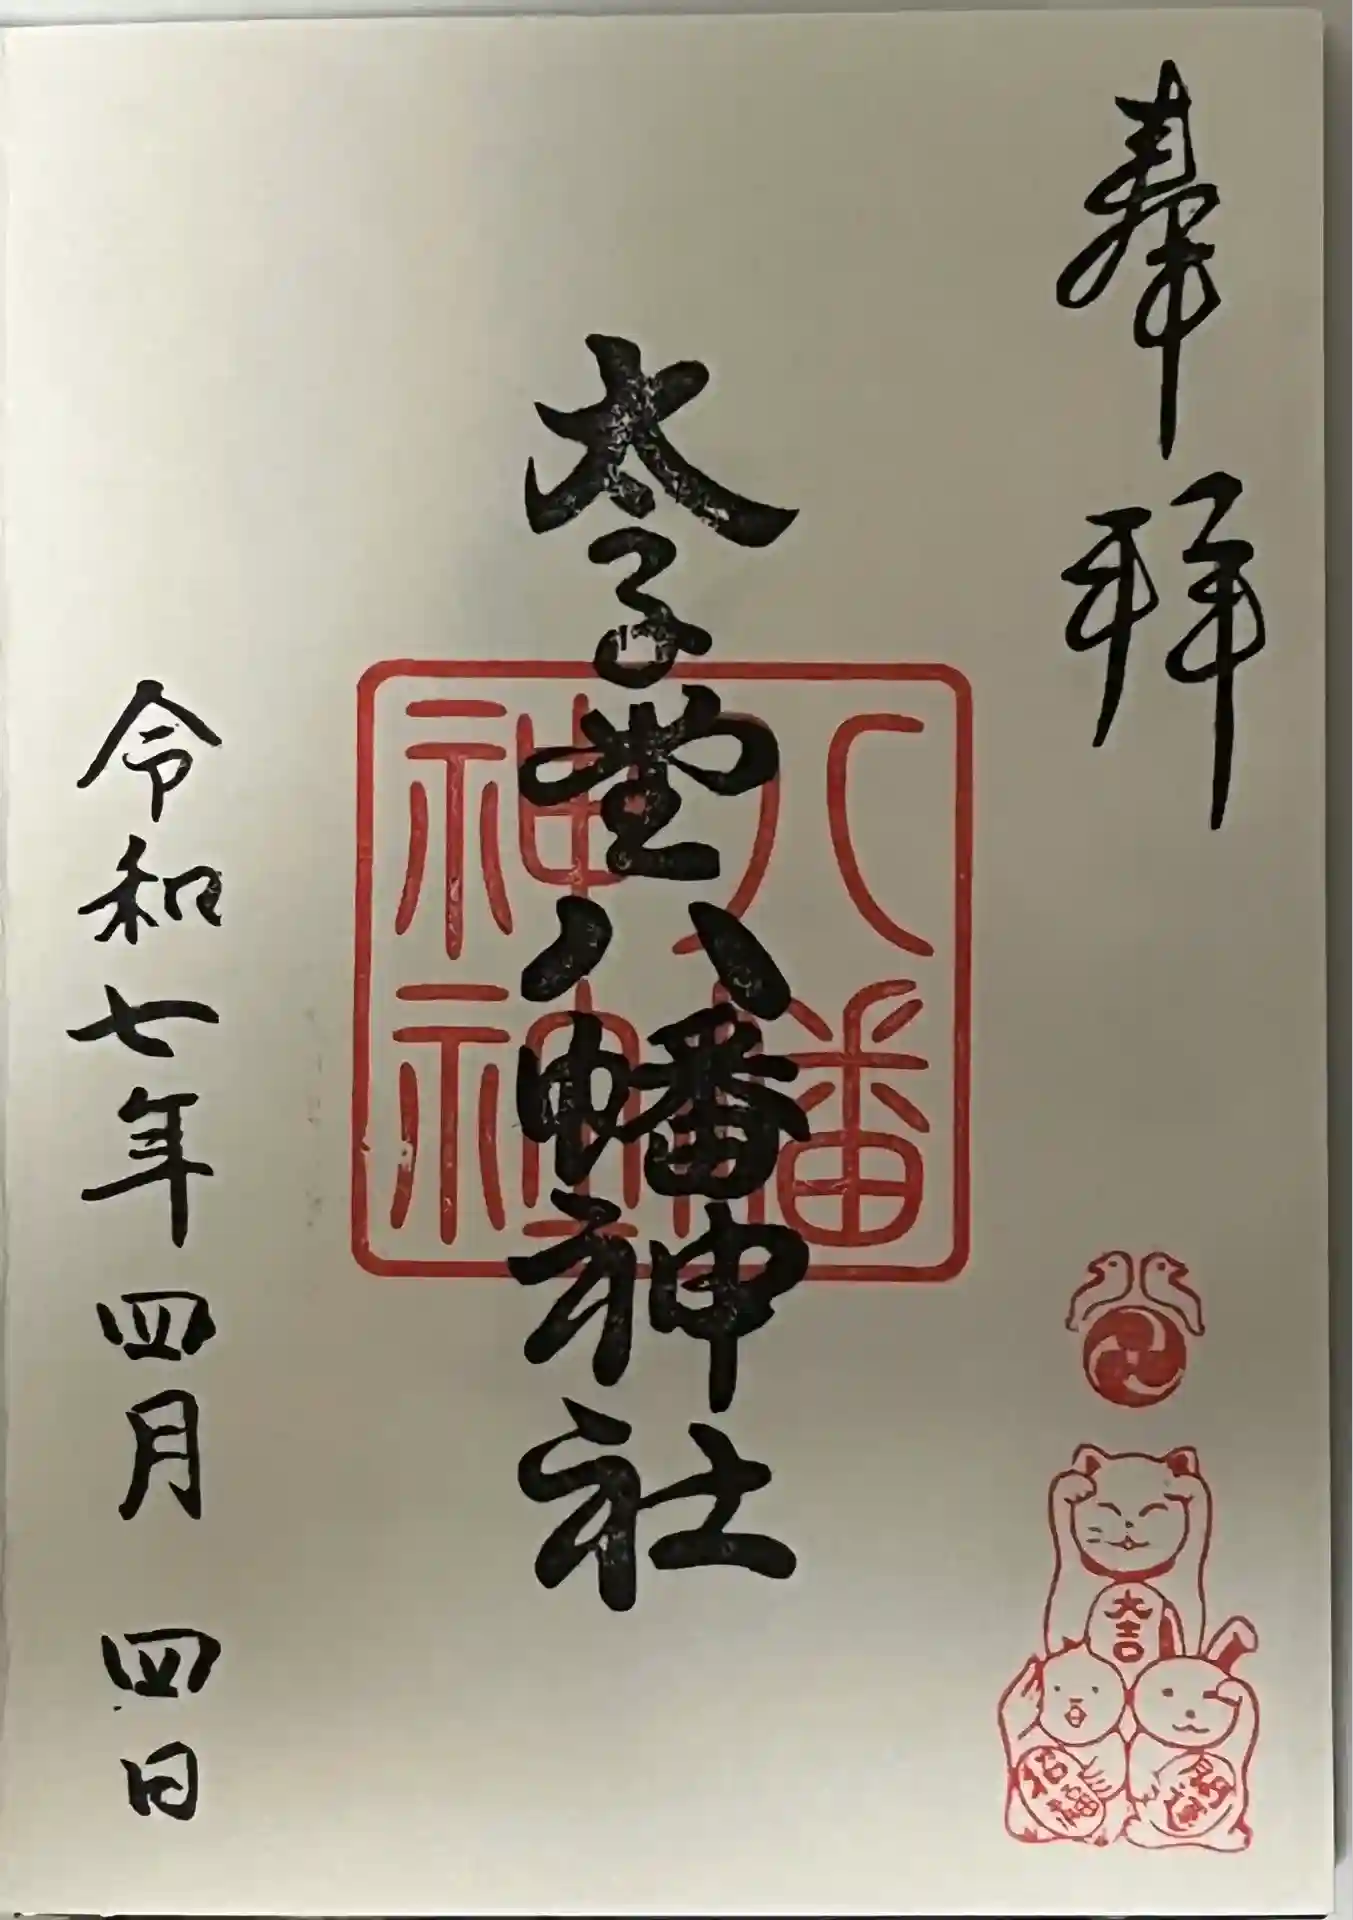 奉拝
太子堂八幡神社
八幡
神社
令和七年四月四日
大吉
招福
開運